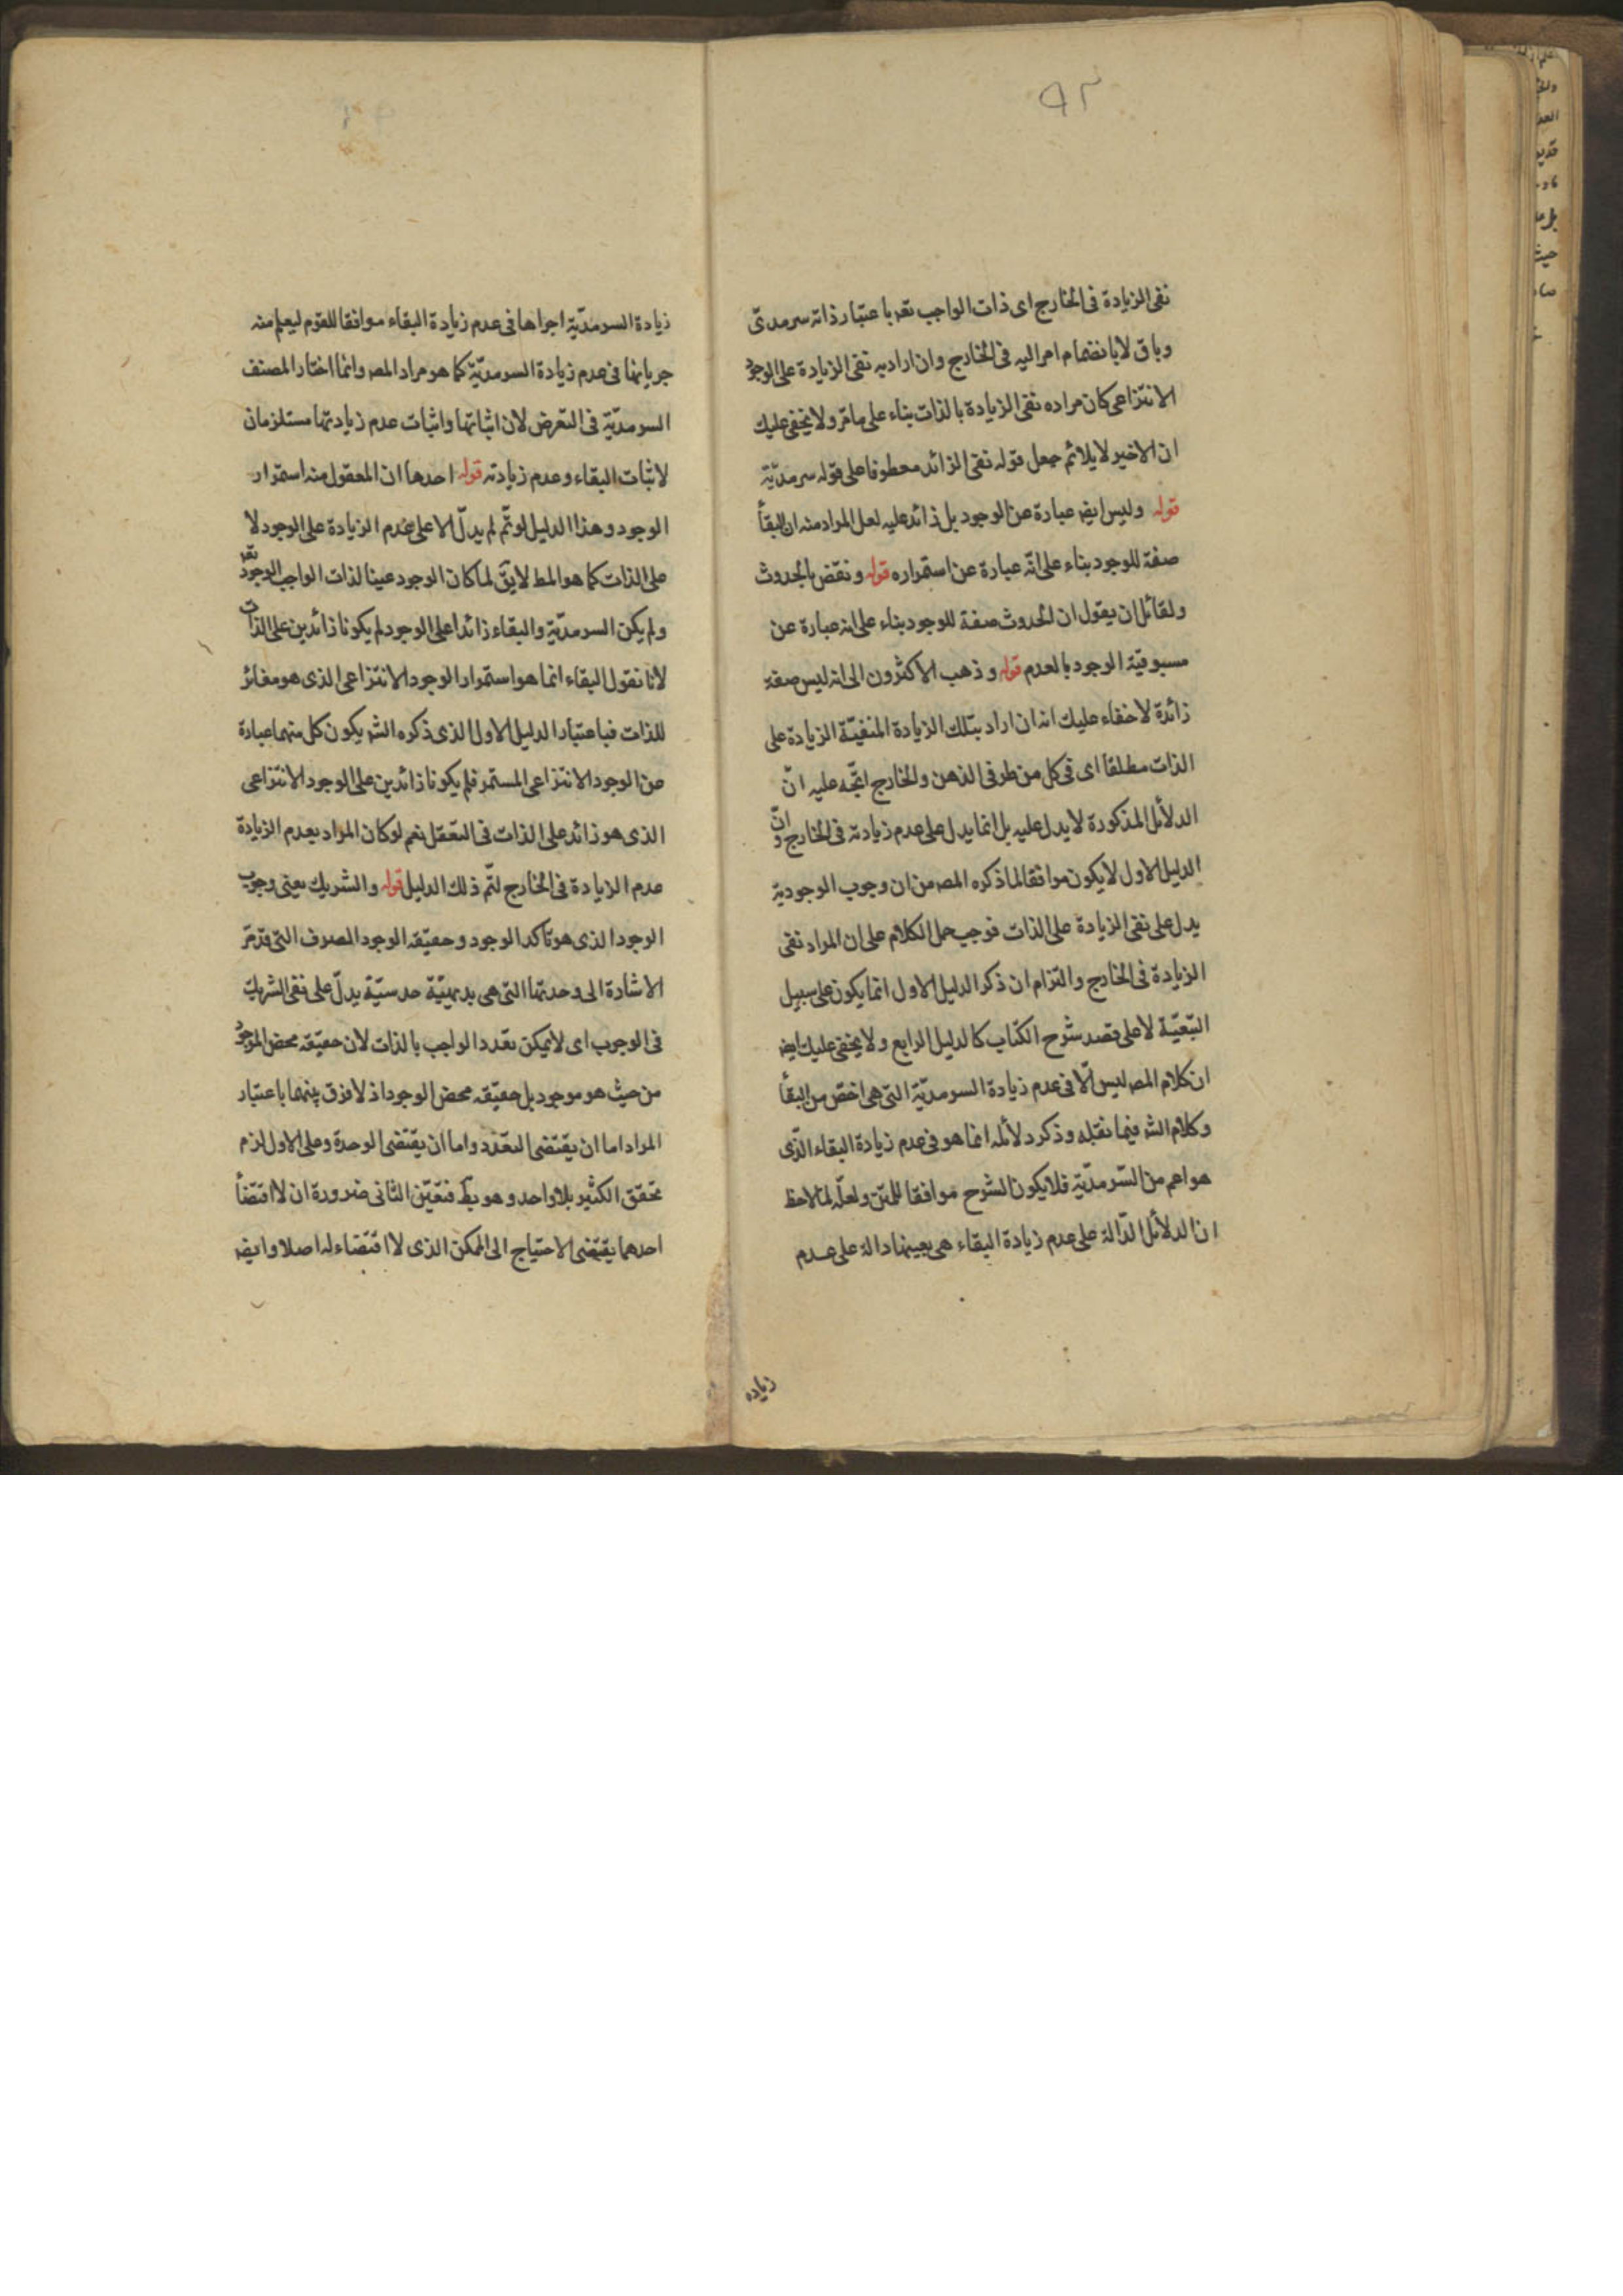 ٩٢
نفى الزيادة فى الخارج اى ذات الواجب تعه باعتبار ذاته سرمدىّ
وباق لا بانضمام امر اليه فى الخارج وان اراد به نفى الزيادة على الوجود
الانتزاعى كان مراده نفى الزيادة بالذات بناء على ما مرّ ولا يخفى عليك
ان الاخير لا يلائم جعل قوله نفى الزائد معطوفا على قوله سرمديّة
قوله وليس ايضه عبارة عن الوجود بل زائد عليه لعل المراد منه ان البقأ
صفة للوجود بناء على انّه عبارة عن استمراره قوله ونقض بالحدوث
ولقائل ان يقول ان الحدوث صفة للوجود بناء على انه عبارة عن
مسبوقيّة الوجود بالعدم قوله وذهب الاكثرون الى انه ليس صفة
زائدة لا خفاء عليك انه ان اراد بتلك الزيادة المنفيّة الزيادة على
الذات مطلقا اى فى كل من طرفى الذهن والخارج اتّجه عليه انّ
الدلائل المذكورة لا يدل عليه بل انما يدل على عدم زيادته فى الخارج وانّ
الدليل الاول لا يكون موافقا لما ذكره المصه من ان وجوب الوجود يه
يدل على نفى الزيادة على الذات فوجب حمل الكلام على ان المراد نفى
الزيادة فى الخارج والتزام ان ذكر الدليل الاول انما يكون على سبيل
التبّعيّة لا على قصد شرح الكتاب كالدليل الرابع ولا يخفى عليك ايضه
ان كلام المصه ليس الّا فى عدم زيادة السرمديّة التى هى اخصّ من البقأ
وكلام الشه فيما نقله وذكر دلائله انما هو فى عدم زيادة البقاء الّذى
هو اعم من السّرمديّة فلا يكون الشرح موافقا للمتن ولعلّه لما لاحظ
ان الدلائل الدّالة على عدم زيادة البقاء هى بعينها دالة على عدم
زياده
زيادة السرمديّة اجراها فى عدم زيادة البقاء موافقا للقوم ليعلم منه
جريانها فى عدم زيادة السرمديّة كما هو مراد المصه وانما اختار المصنف
السرمديّة فى التعرض لان اثباتها واثبات عدم زيادتها مستلزمان
لاثبات البقاء وعدم زيادته قوله احدها ان المعقول منه استمرار
الوجود وهذا الدليل لو تمّ لم يدلّ الا على عدم الزيادة على الوجود لا
على الذات كما هو المط لا يقّ لما كان الوجود عينا لذات الواجب الوجود تعه
ولم يكن السرمديّة والبقاء زائدا على الوجود لم يكونا زائدين على الذات
لانا نقول البقاء انما هو استمرار الوجود الانتزاعى الذى هو مغائر
للذات فباعتبار الدليل الاول الذى ذكره الشه يكون كل منهما عبارة
عن الوجود الانتزاعى المستمر فلم يكونا زائدين على الوجود الانتزاعى
الذى هو زائد على الذات فى التعقل نعم لو كان المراد بعدم الزيادة
عدم الزيادة فى الخارج لتمّ ذلك الدليل قوله والشريك يعنى وجوب
الوجود الذى هو تاكد الوجود وحقيقه الوجود الصرف التى قد مرّ
الاشارة الى وحدتها التى هى بديهيّة حدسيّة يدلّ على نفى الشريك
فى الوجوب اى لا يمكن تعدد الواجب بالذات لان حقيقه محض الموجود
من حيث هو موجود بل حقيقه محض الوجود اذ لا فرق بينهما باعتبار
المراد اما ان يقتضى التعّدد واما ان يقتضى الوحدة وعلى الاول لزم
تحقق الكثير بلا واحد وهو بط فتعيّن الثانى ضرورة ان لا اقتضأ
احدهما يقتضى الاحتياج الى الممكن الذى لا اقتضاء له اصلا وايضه